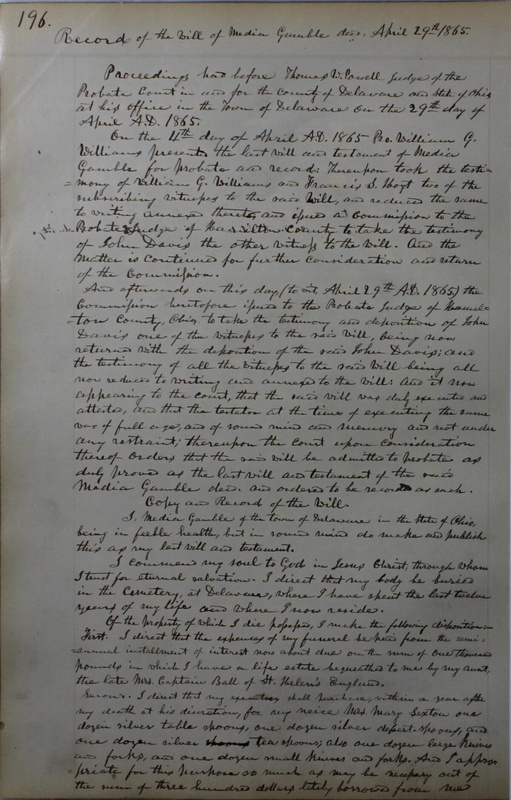 196.
Record of the Will of Media Gamble decd. April 29th 1865.
Proceedings had before Thomas W. Powell Judge of the
Probate Court in and for the County of Delaware and State of Ohio
at his office in the Town of Delaware on the 29th day of
April A.D. 1865.
On the 4th day of April A.D. 1865 Pro. William G.
Williams presents the last will and testament of Media
Gamble for Probate and record; Thereupon took the testi-
=mony of William G. Williams and Francis S. Hoyt two of the
subscribing witnesses to the said Will, and reduced the same
to writing annexed thereto, and issued a Commission to the
Probate Judge of Hamilton County to take the testimony
of John Davis the other witness to the Will. And the
matter is continued for further consideration and return
of the Commission.
And afterwards on this day, (to wit, April 29th A.D. 1865) the
Commission heretofore issued to the Probate Judge of Hamil-
=ton County, Ohio, to take the testimony and deposition of John
Davis one of the witnesses to the said Will, being now
returned with the deposition of the said John Davis; and
the testimony of all the witnesses to the said Will being all
now reduced to writing and annexed to the will: And it now
appearing to the court, that the said will was duly executed and
attested, and that the testator at the time of executing the same
was of full age, and of sound mind and memory and not under
any restraint; thereupon the court upon consideration
thereof orders that the said will be admitted to probate as
duly proved as the last will and testament of the said
Media Gamble decd. and ordered to be recorded as such.
Copy and Record of the Will.
I, Media Gamble of the town of Delaware in the State of Ohio,
being in feeble health, but in sound mind do make and publish
this as my last will and testament.
I commend my soul to God in Jesus Christ, through whom
I trust for eternal salvation. I direct that my body be buried
in the Cemetery, at Delaware, where I have spent the last twelve
years of my life and where I now reside.
Of the property of which I die possessed, I make the following disposition=
First. I direct that the expenses of my funeral be paid from the semi-
=annual installment of interest now about due on the sum of One thousand
pounds in which I have a life estate bequeathed to me by my aunt,
the late Mrs. Captain Ball of St. Helen's England.
Second. I direct that my executor shall purchase, within a year after
my death at his discretion, for my neice Mrs. Mary Sexton one
dozen silver table spoons, one dozen silver desert-spoons, and
one dozen silver spoons tea spoons; also one dozen large knives
and forks, and one dozen small knives and forks. And I appro=
priate for this purpose so much as may be necessary out of
the sum of three hundred dollars lately borrowed from me